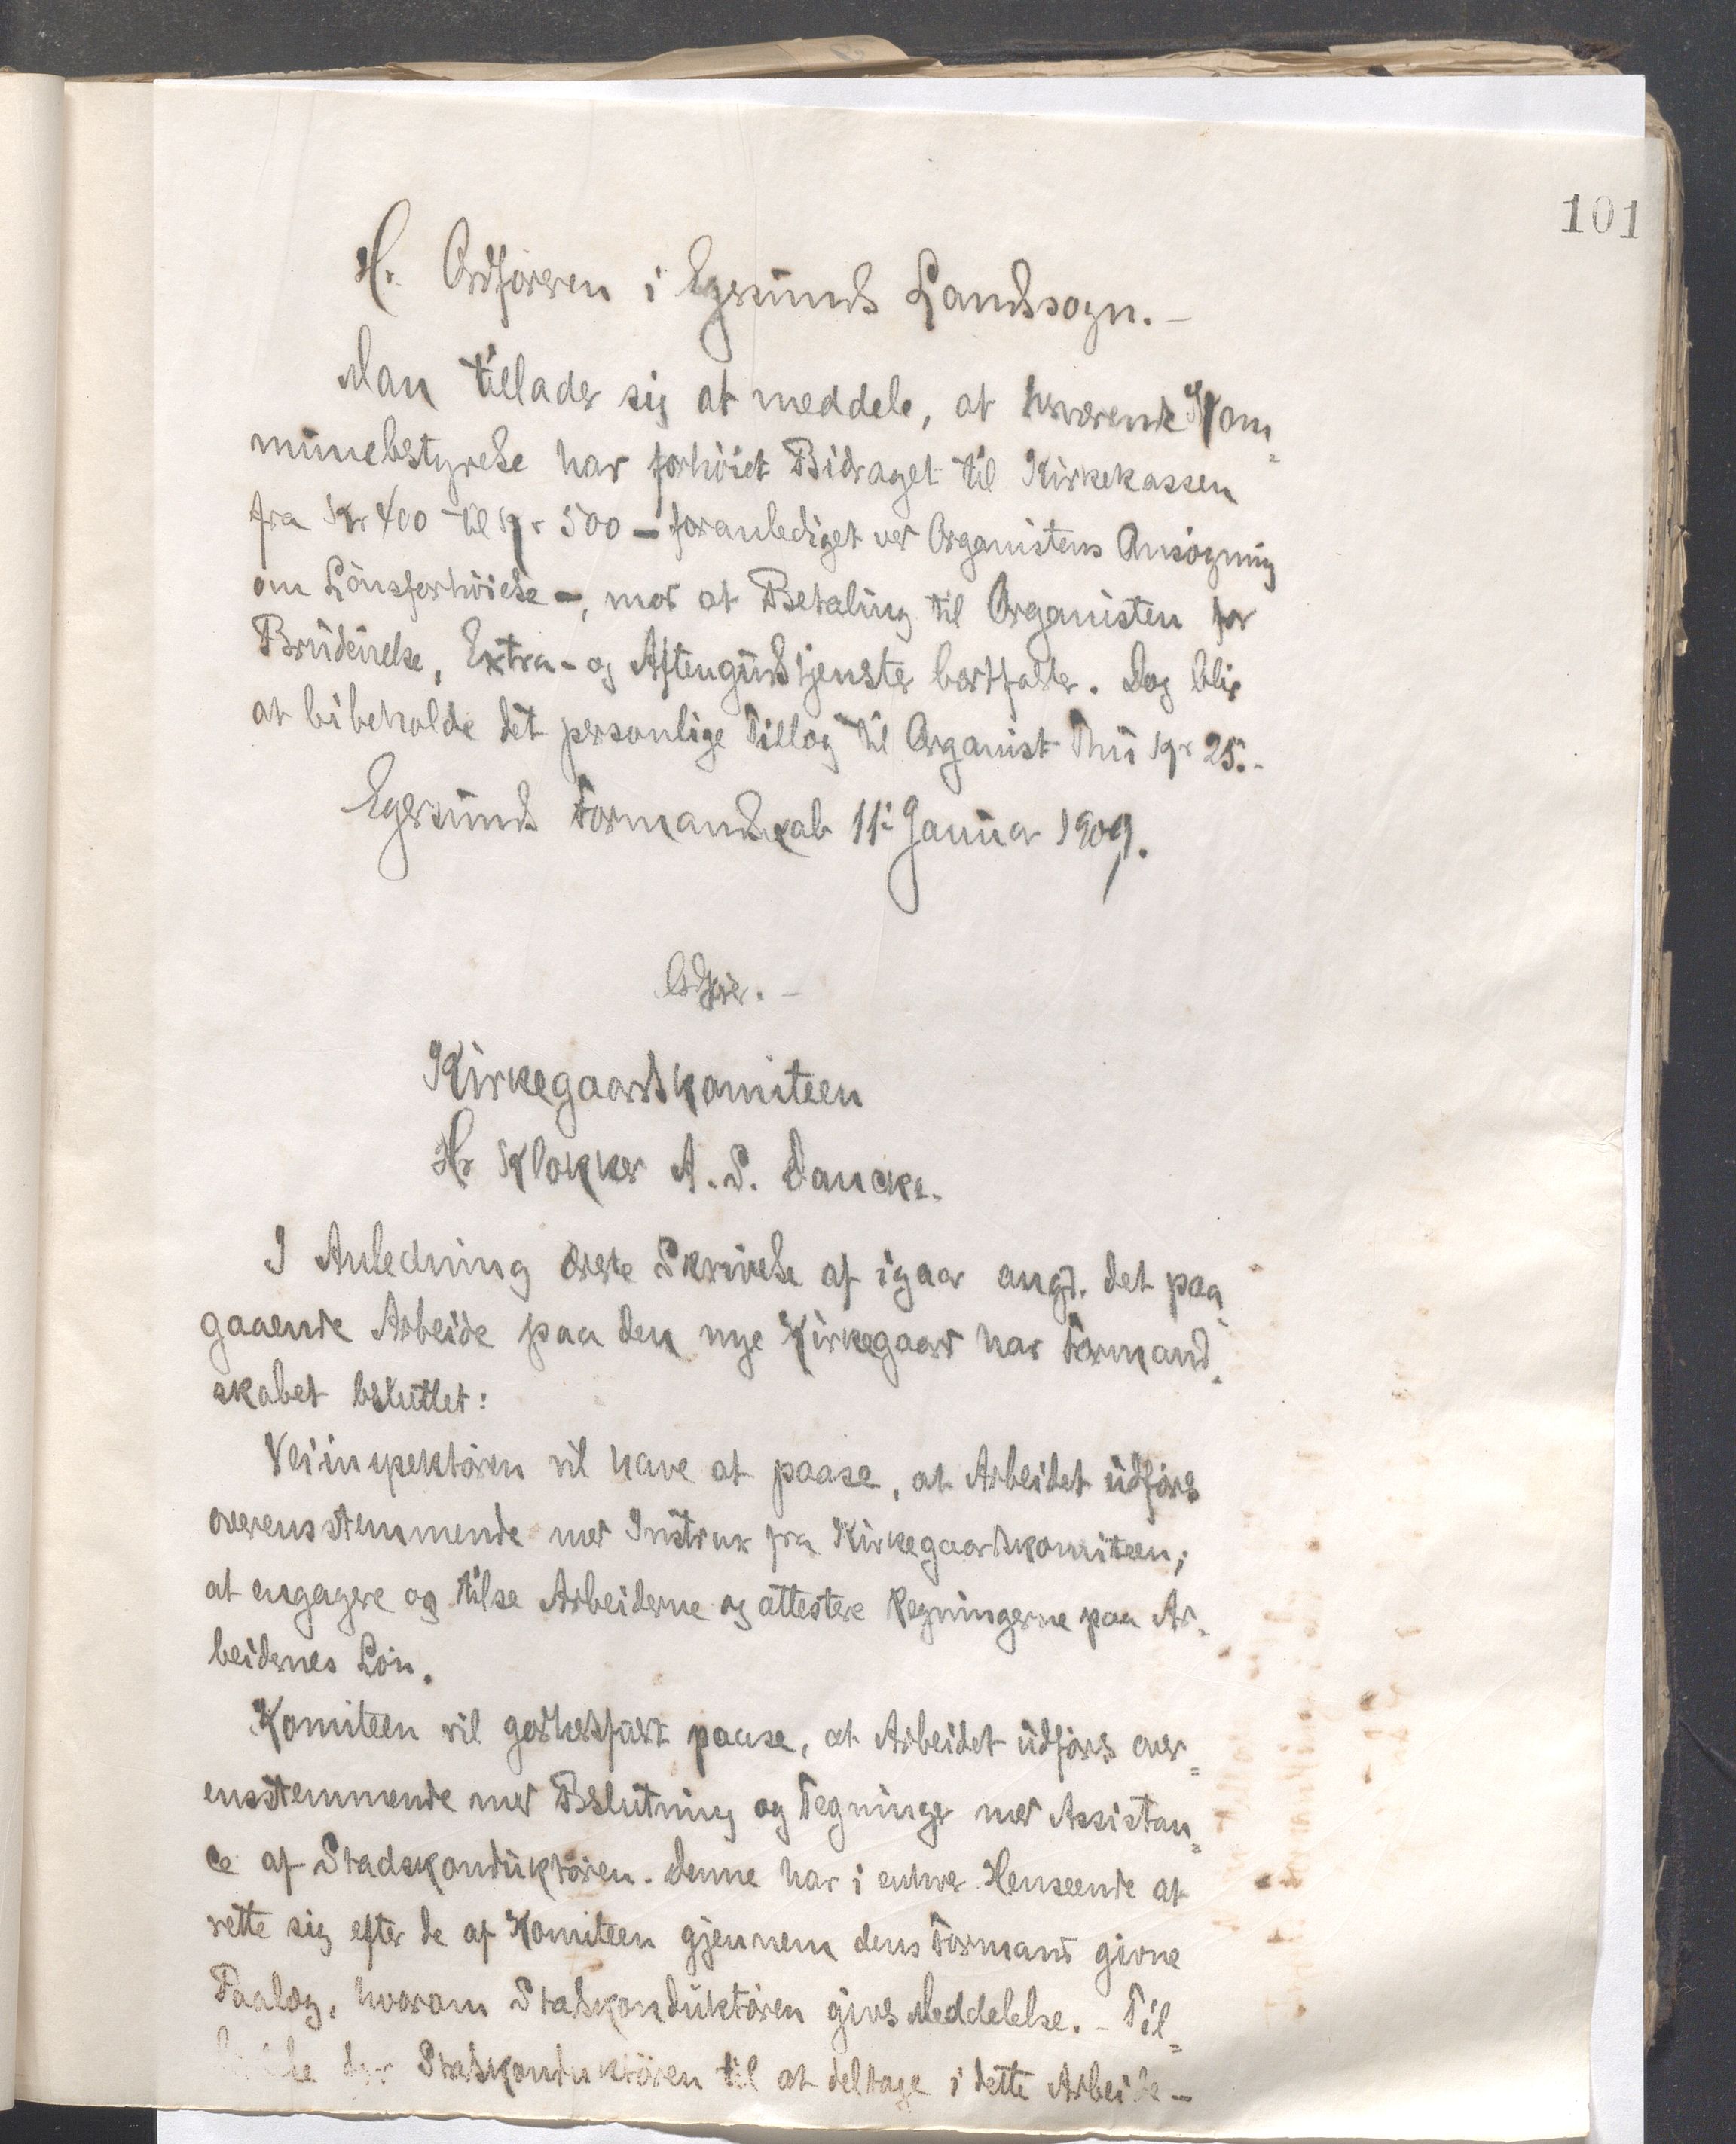 101
Hr. Ordføreren i Egersunds Landssogn. -
Man tillader sig at meddele, at herværende Kom-
munebestyrelse har forhøiet Bidraget til Kirkekassen
fra Kr 400 til Kr 500 - foranlediget ved Organistens Ansøgning
om Lønsforhøielse -, mod at Betaling til Organisten for
Brudevielse, Extra- og Aftengudstjenester bortfalder. Dog blir
at bibeholde det personlige Tillæg til Organist Thu Kr 25.-
Egersunds Formandskab 11' Januar 1909.
Kirkegaardskomiteen
Hr Klokker A. S. Dancke.
I Anledning Deres Skrivelse af igaar angd. det paa-
gaaende Arbeide paa den nye Kirkegaard har Formand-
skabet besluttet:
Veiinspektøren vil have at paase, at Arbeidet udføres
overensstemmende med Instrux fra Kirkegaardskomiteen;
at engagere og tilse Arbeiderne og attestere Regningerne paa Ar-
beidernes Løn.
Komiteen vil godhedsfuldt paase, at Arbeidet udføres over-
ensstemmende med Beslutning og Tegninger med Assistan-
ce af Stadskonduktøren. Denne har i enhver Henseende at
rette sig efter de af Komiteen gjennem dens Formand givne
Paalæg, hvorom Stadskonduktøren gives Meddelelse. - Til-
Stadskonduktøren til at deltage i dette Arbeide -